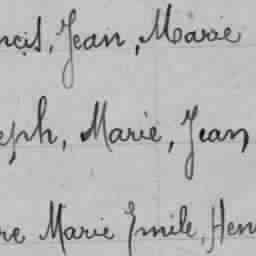 ncis, Jean, Marie
eph, Marie, Jean
re Marie Emile, Hen